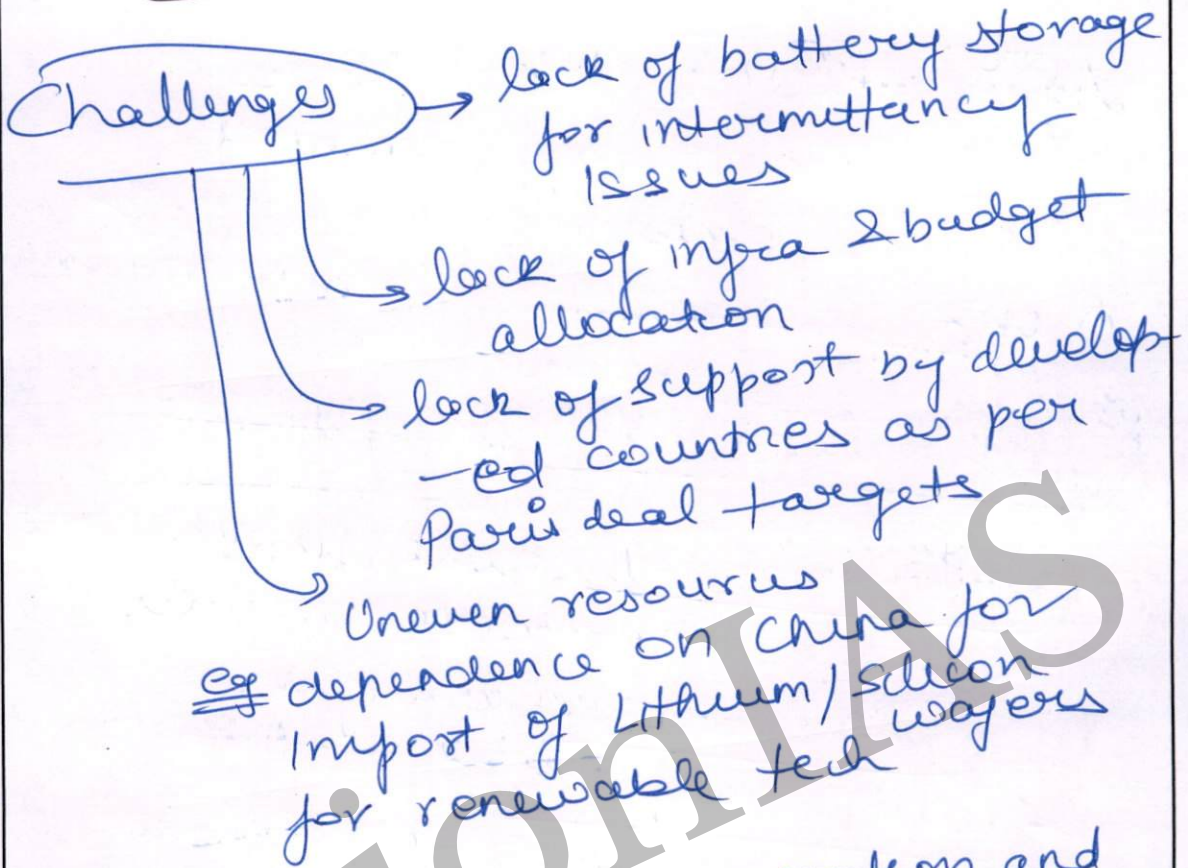 Challenges → lack of battery storage
for intermittancy
issues
lack of infra & budget
allocation
lack of support by develop
-ed countries as per
Paris deal targets
Uneven resources
eg dependence on China for
import of Lithium/Silicon
wafers
for renewable tech
and
ionIAS